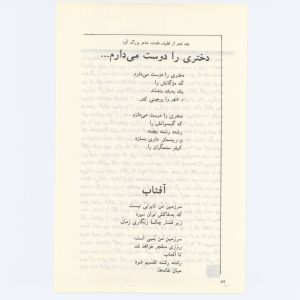 چند شعر از لطیف هلمت، شاعر بزرگ کُرد
دختری را دوست می‌دارم...
دختری را دوست می‌دارم
که مژگانش را
یک به‌یک بنشاند
و شهر را پرچینی کند.
دختری را دوست می‌دارم
که گیسوانش را
رشته رشته بچیند
و ریسمان داری بسازد
کیفر ستمگران را.
آفتاب
سرزمین من تابوتی نیست
که به‌خاکش توان سپرد
زیر فشار چکمهٔ زنگاری زمان.
سرزمین من بمبی است،
روزی منفجر خواهد شد
تا آفتاب
رشته رشته تقسیم شود
میان خانه‌ها.